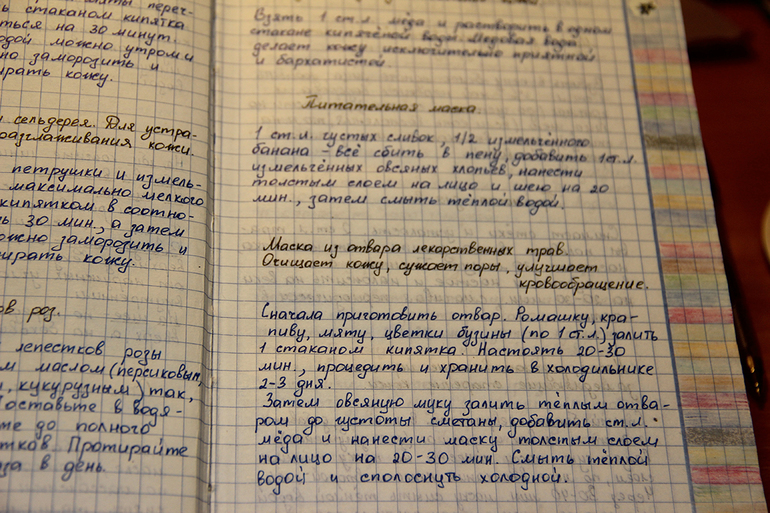 мяты переч-
стаканом кипятка
ться на 30 минут.
водой можно утром и
но заморозить и
ирать кожу.
сельдерея. Для устра-
разглаживания кожи.
петрушки и измель-
максимально мелкого
кипятком в соотно-
ь 30 мин., а затем
ожно заморозить и
ирать кожу.
ов роз.
лепестков розы
м маслом (персиковым,
, кукурузным) так,
оставьте в водя-
те до полного
тков. Протирайте
за в день.
Взять 1 ст.л. мёда и растворить в одном
стакане кипячёной воды. Медовая вода
делает кожу исключительно приятной
и бархатистой
Питательная маска.
1 ст.л. густых сливок, 1/2 измельчённого
банана – всё сбить в пену, добавить 1 ст.л.
измельчённых овсяных хлопьев, нанести
толстым слоем на лицо и шею на 20
мин., затем смыть тёплой водой.
Маска из отвара лекарственных трав.
Очищает кожу, сужает поры, улучшает
кровообращение.
Сначала приготовить отвар. Ромашку, кра-
пиву, мяту, цветки бузины (по 1 ст.л.) залить
1 стаканом кипятка. Настоять 20-30
мин., процедить и хранить в холодильнике
2-3 дня.
Затем овсяную муку залить тёплым отва-
ром до густоты сметаны, добавить ст.л.
мёда и нанести маску толстым слоем
на лицо на 20-30 мин. Смыть тёплой
водой и сполоснуть холодной.